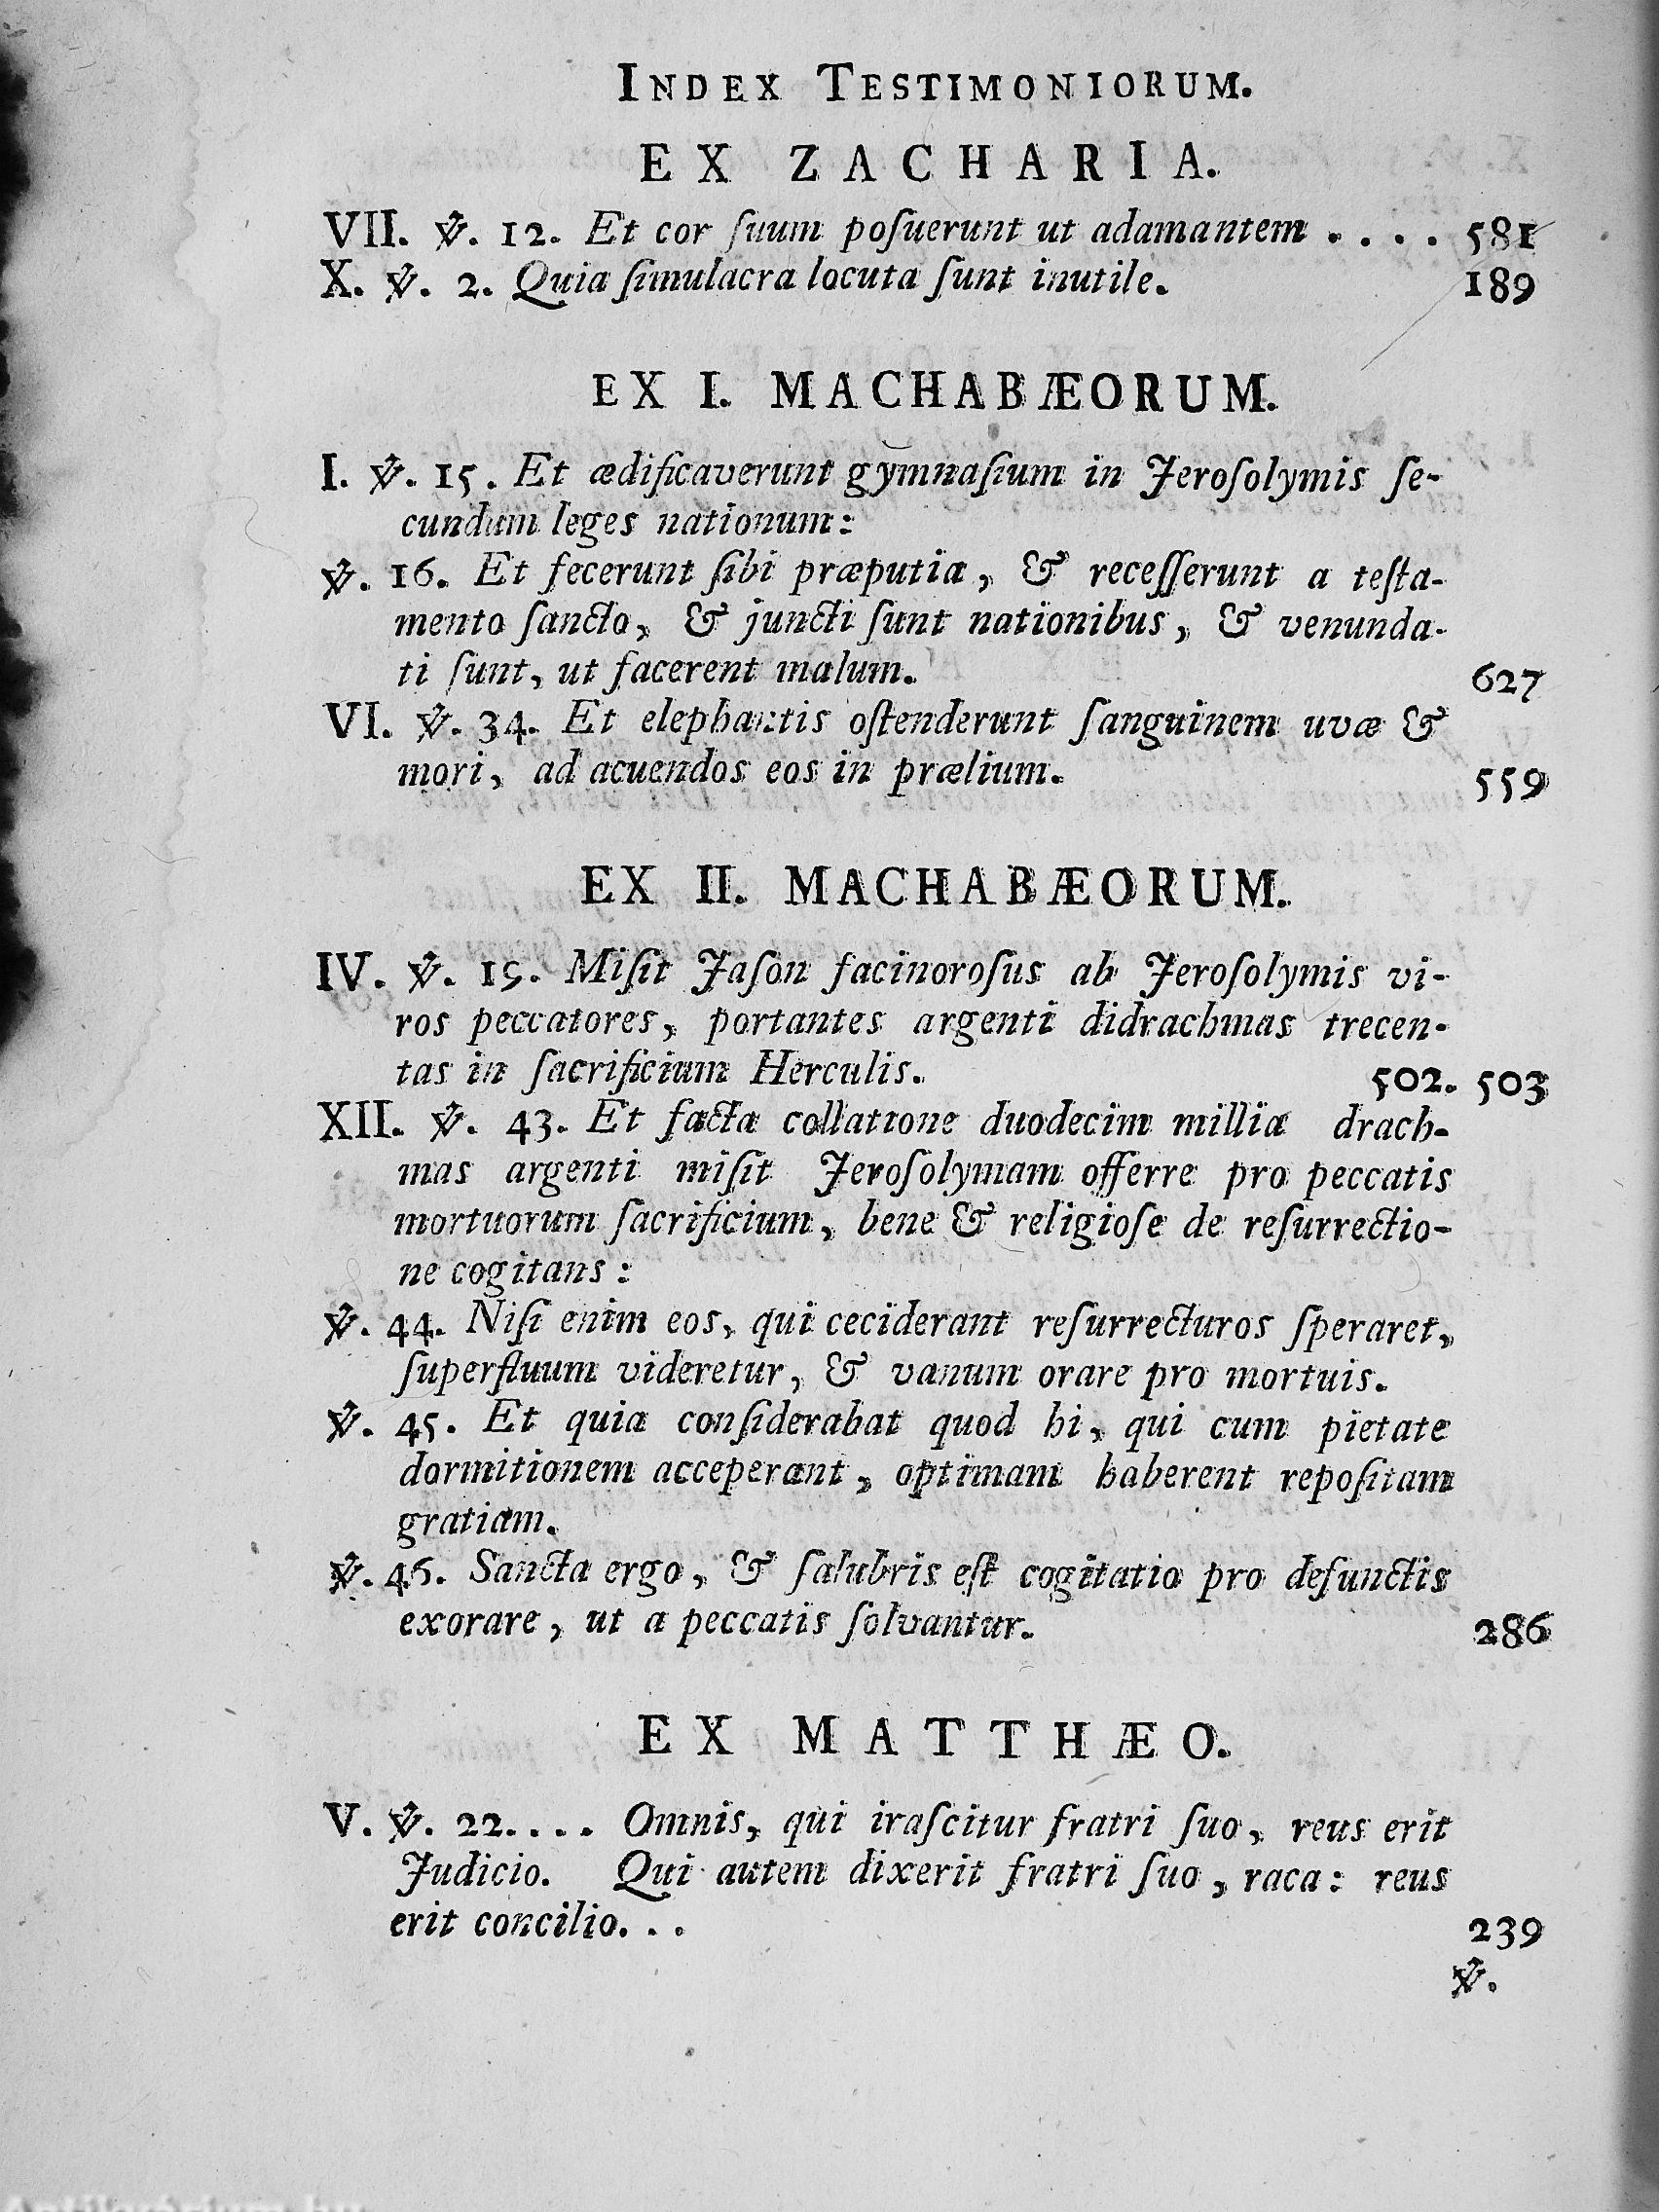 INDEX TESTIMONIORUM.
EX ZACHARIA.
VII. ℣. 12. Et cor ſuum poſuerunt ut adamantem . . . . 581
X. ℣. 2. Quia ſimulacra locuta ſunt inutile. 189
EX I. MACHABÆORUM.
I. ℣. 15. Et ædificaverunt gymnaſium in Jeroſolymis ſe-
cundum leges nationum:
℣. 16. Et fecerunt ſibi præputia, & receſſerunt a teſta-
mento ſancto, & juncti ſunt nationibus, & venunda-
ti ſunt, ut facerent malum. 627
VI. ℣. 34. Et elephantis oſtenderunt ſanguinem uvæ &
mori, ad acuendos eos in prælium. 559
EX II. MACHABÆORUM.
IV. ℣. 19. Miſit Jaſon facinoroſus ab Jeroſolymis vi-
ros peccatores, portantes argenti didrachmas trecen-
tas in ſacrificium Herculis. 502. 503
XII. ℣. 43. Et facta collatione duodecim millia drach-
mas argenti miſit Jeroſolymam offerre pro peccatis
mortuorum ſacrificium, bene & religioſe de reſurrectio-
ne cogitans:
℣. 44. Niſi enim eos, qui ceciderant reſurrecturos ſperaret,
ſuperfluum videretur, & vanum orare pro mortuis.
℣. 45. Et quia conſiderabat quod hi, qui cum pietate
dormitionem acceperant, optimam haberent repoſitam
gratiam.
℣. 46. Sancta ergo, & ſalubris eſt cogitatio pro defunctis
exorare, ut a peccatis ſolvantur. 286
EX MATTHÆO.
V. ℣. 22. . . . Omnis, qui iraſcitur fratri ſuo, reus erit
Judicio. Qui autem dixerit fratri ſuo, raca: reus
erit concilio. . . 239
℣.